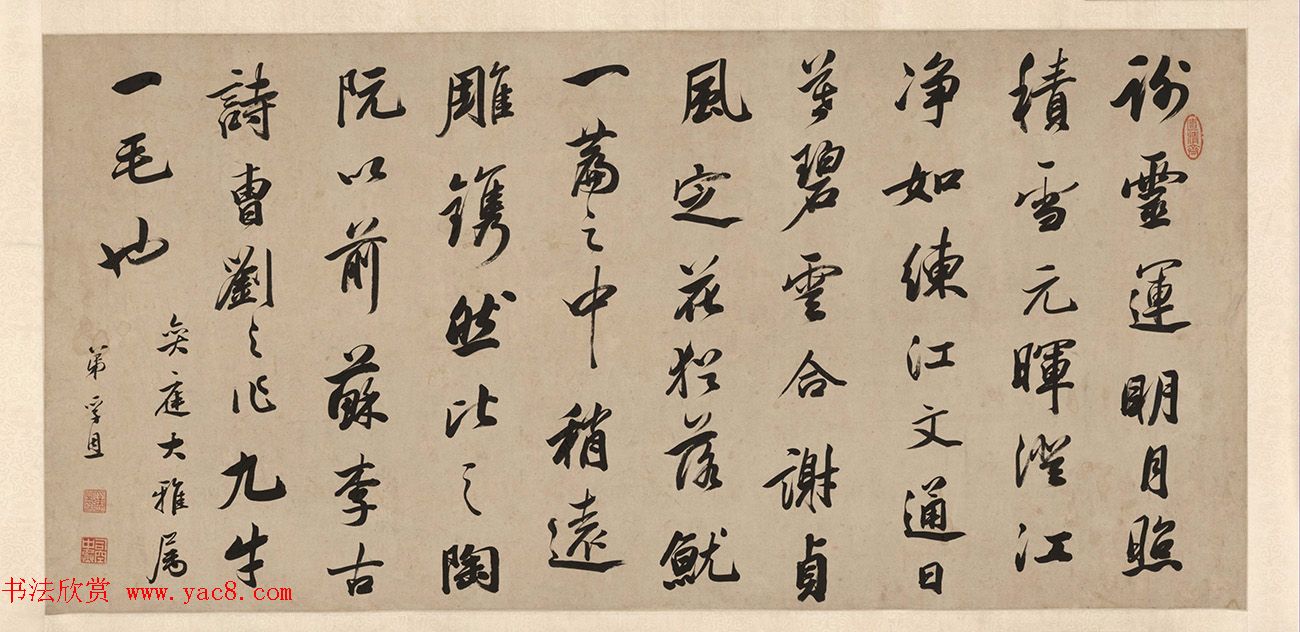 謝靈運明月照
積雪元暉澄江
净如練江文通日
莫碧雲合謝貞
風定花猶落就
一篇之中稍遠
雕鐫然比之陶
阮以前蘇李古
詩曹劉之作九牛
一毛也
奕庭大雅属
弟孚恩
书法欣赏 www.yac8.com